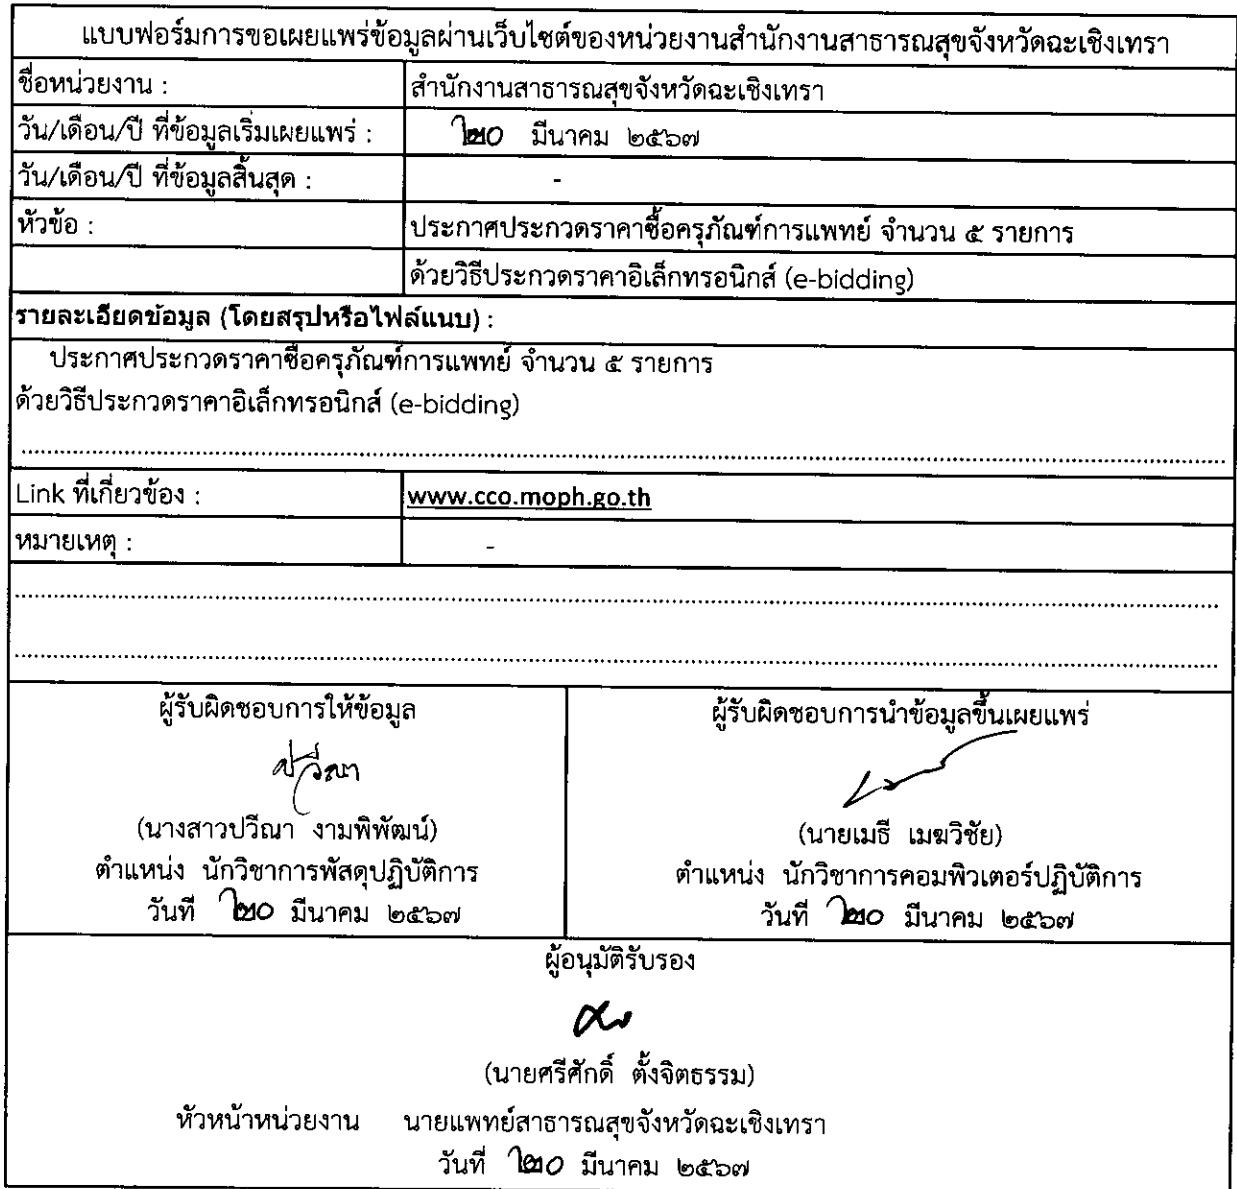 แบบฟอร์มการขอเผยแพร่ข้อมูลผ่านเว็บไซต์ของหน่วยงานสำนักงานสาธารณสุขจังหวัดฉะเชิงเทรา
ชื่อหน่วยงาน : สำนักงานสาธารณสุขจังหวัดฉะเชิงเทรา
วัน/เดือน/ปี ที่ข้อมูลเริ่มเผยแพร่ : ๒๐ มีนาคม ๒๕๖๗
วัน/เดือน/ปี ที่ข้อมูลสิ้นสุด : -
หัวข้อ : ประกาศประกวดราคาซื้อครุภัณฑ์การแพทย์ จำนวน ๕ รายการ
ด้วยวิธีประกวดราคาอิเล็กทรอนิกส์ (e-bidding)
รายละเอียดข้อมูล (โดยสรุปหรือไฟล์แนบ) :
ประกาศประกวดราคาซื้อครุภัณฑ์การแพทย์ จำนวน ๕ รายการ
ด้วยวิธีประกวดราคาอิเล็กทรอนิกส์ (e-bidding)
Link ที่เกี่ยวข้อง : www.cco.moph.go.th
หมายเหตุ : -
ผู้รับผิดชอบการให้ข้อมูล
ปวีณา
(นางสาวปวีณา งามพิพัฒน์)
ตำแหน่ง นักวิชาการพัสดุปฏิบัติการ
วันที่ ๒๐ มีนาคม ๒๕๖๗
ผู้รับผิดชอบการนำข้อมูลขึ้นเผยแพร่
(นายเมธี เมฆวิชัย)
ตำแหน่ง นักวิชาการคอมพิวเตอร์ปฏิบัติการ
วันที่ ๒๐ มีนาคม ๒๕๖๗
ผู้อนุมัติรับรอง
(นายศรีศักดิ์ ตั้งจิตธรรม)
หัวหน้าหน่วยงาน นายแพทย์สาธารณสุขจังหวัดฉะเชิงเทรา
วันที่ ๒๐ มีนาคม ๒๕๖๗